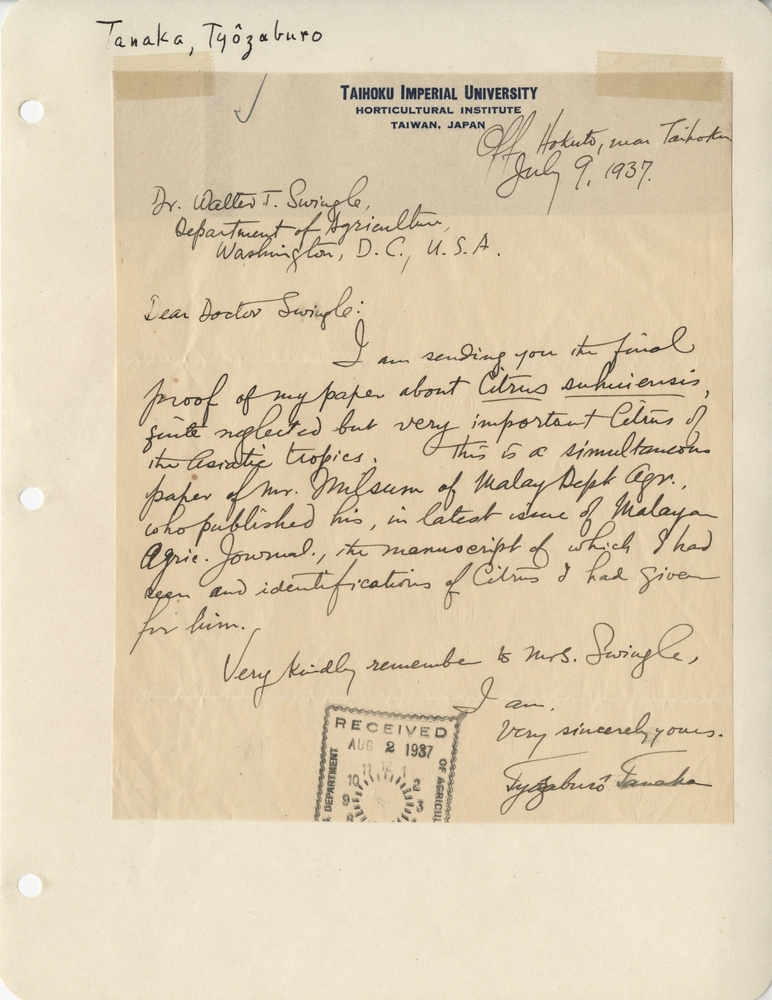 Tanaka, Tyôzaburo
TAIHOKU IMPERIAL UNIVERSITY
HORTICULTURAL INSTITUTE
TAIWAN, JAPAN
Off Hokuto, near Taihoku
July 9, 1937.
Dr. Walter T. Swingle,
Department of Agriculture,
Washington, D.C., U.S.A.
Dear Doctor Swingle:
I am sending you the final
proof of my paper about Citrus suhuiensis,
quite neglected but very important Citrus of
the Asiatic tropics. This is a simultaneous
paper of Mr. Milsum of Malay Dept Agr.,
who published his, in latest issue of Malayan
Agric. Journal., the manuscript of which I had
seen and identifications of Citrus I had given
for him.
Very kindly remember to Mrs. Swingle,
I am.
Very sincerely yours.
Tyôzaburô Tanaka
RECEIVED
AUG 2 1937
DEPARTMENT
OF AGRICUL
11 12 1
10 2
9 3